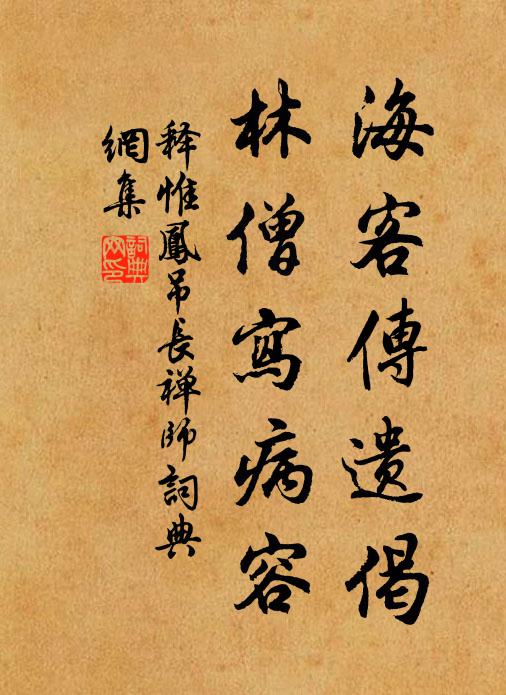 海客傳遺偈
林僧寫病容
释惟鳳吊長禅師詞典
網集
詞典
网印